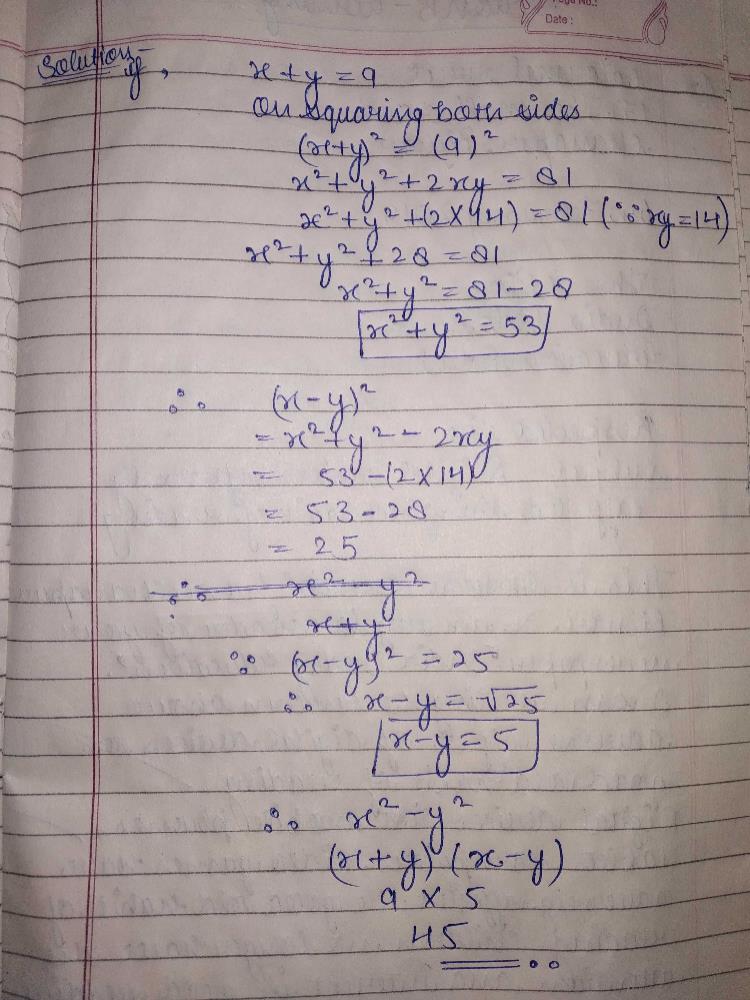 Page No.:
Date :
Solution - if, x + y = 9
On squaring both sides
(x+y)² = (9)²
x² + y² + 2xy = 81
x² + y² + (2 × 14) = 81 (∵ xy = 14)
x² + y² + 28 = 81
x² + y² = 81 - 28
x² + y² = 53
∴ (x - y)²
= x² + y² - 2xy
= 53 - (2 × 14)
= 53 - 28
= 25
∴ x² - y²
x + y
∵ (x - y)² = 25
∴ x - y = √25
x - y = 5
∴ x² - y²
(x + y) (x - y)
9 × 5
45